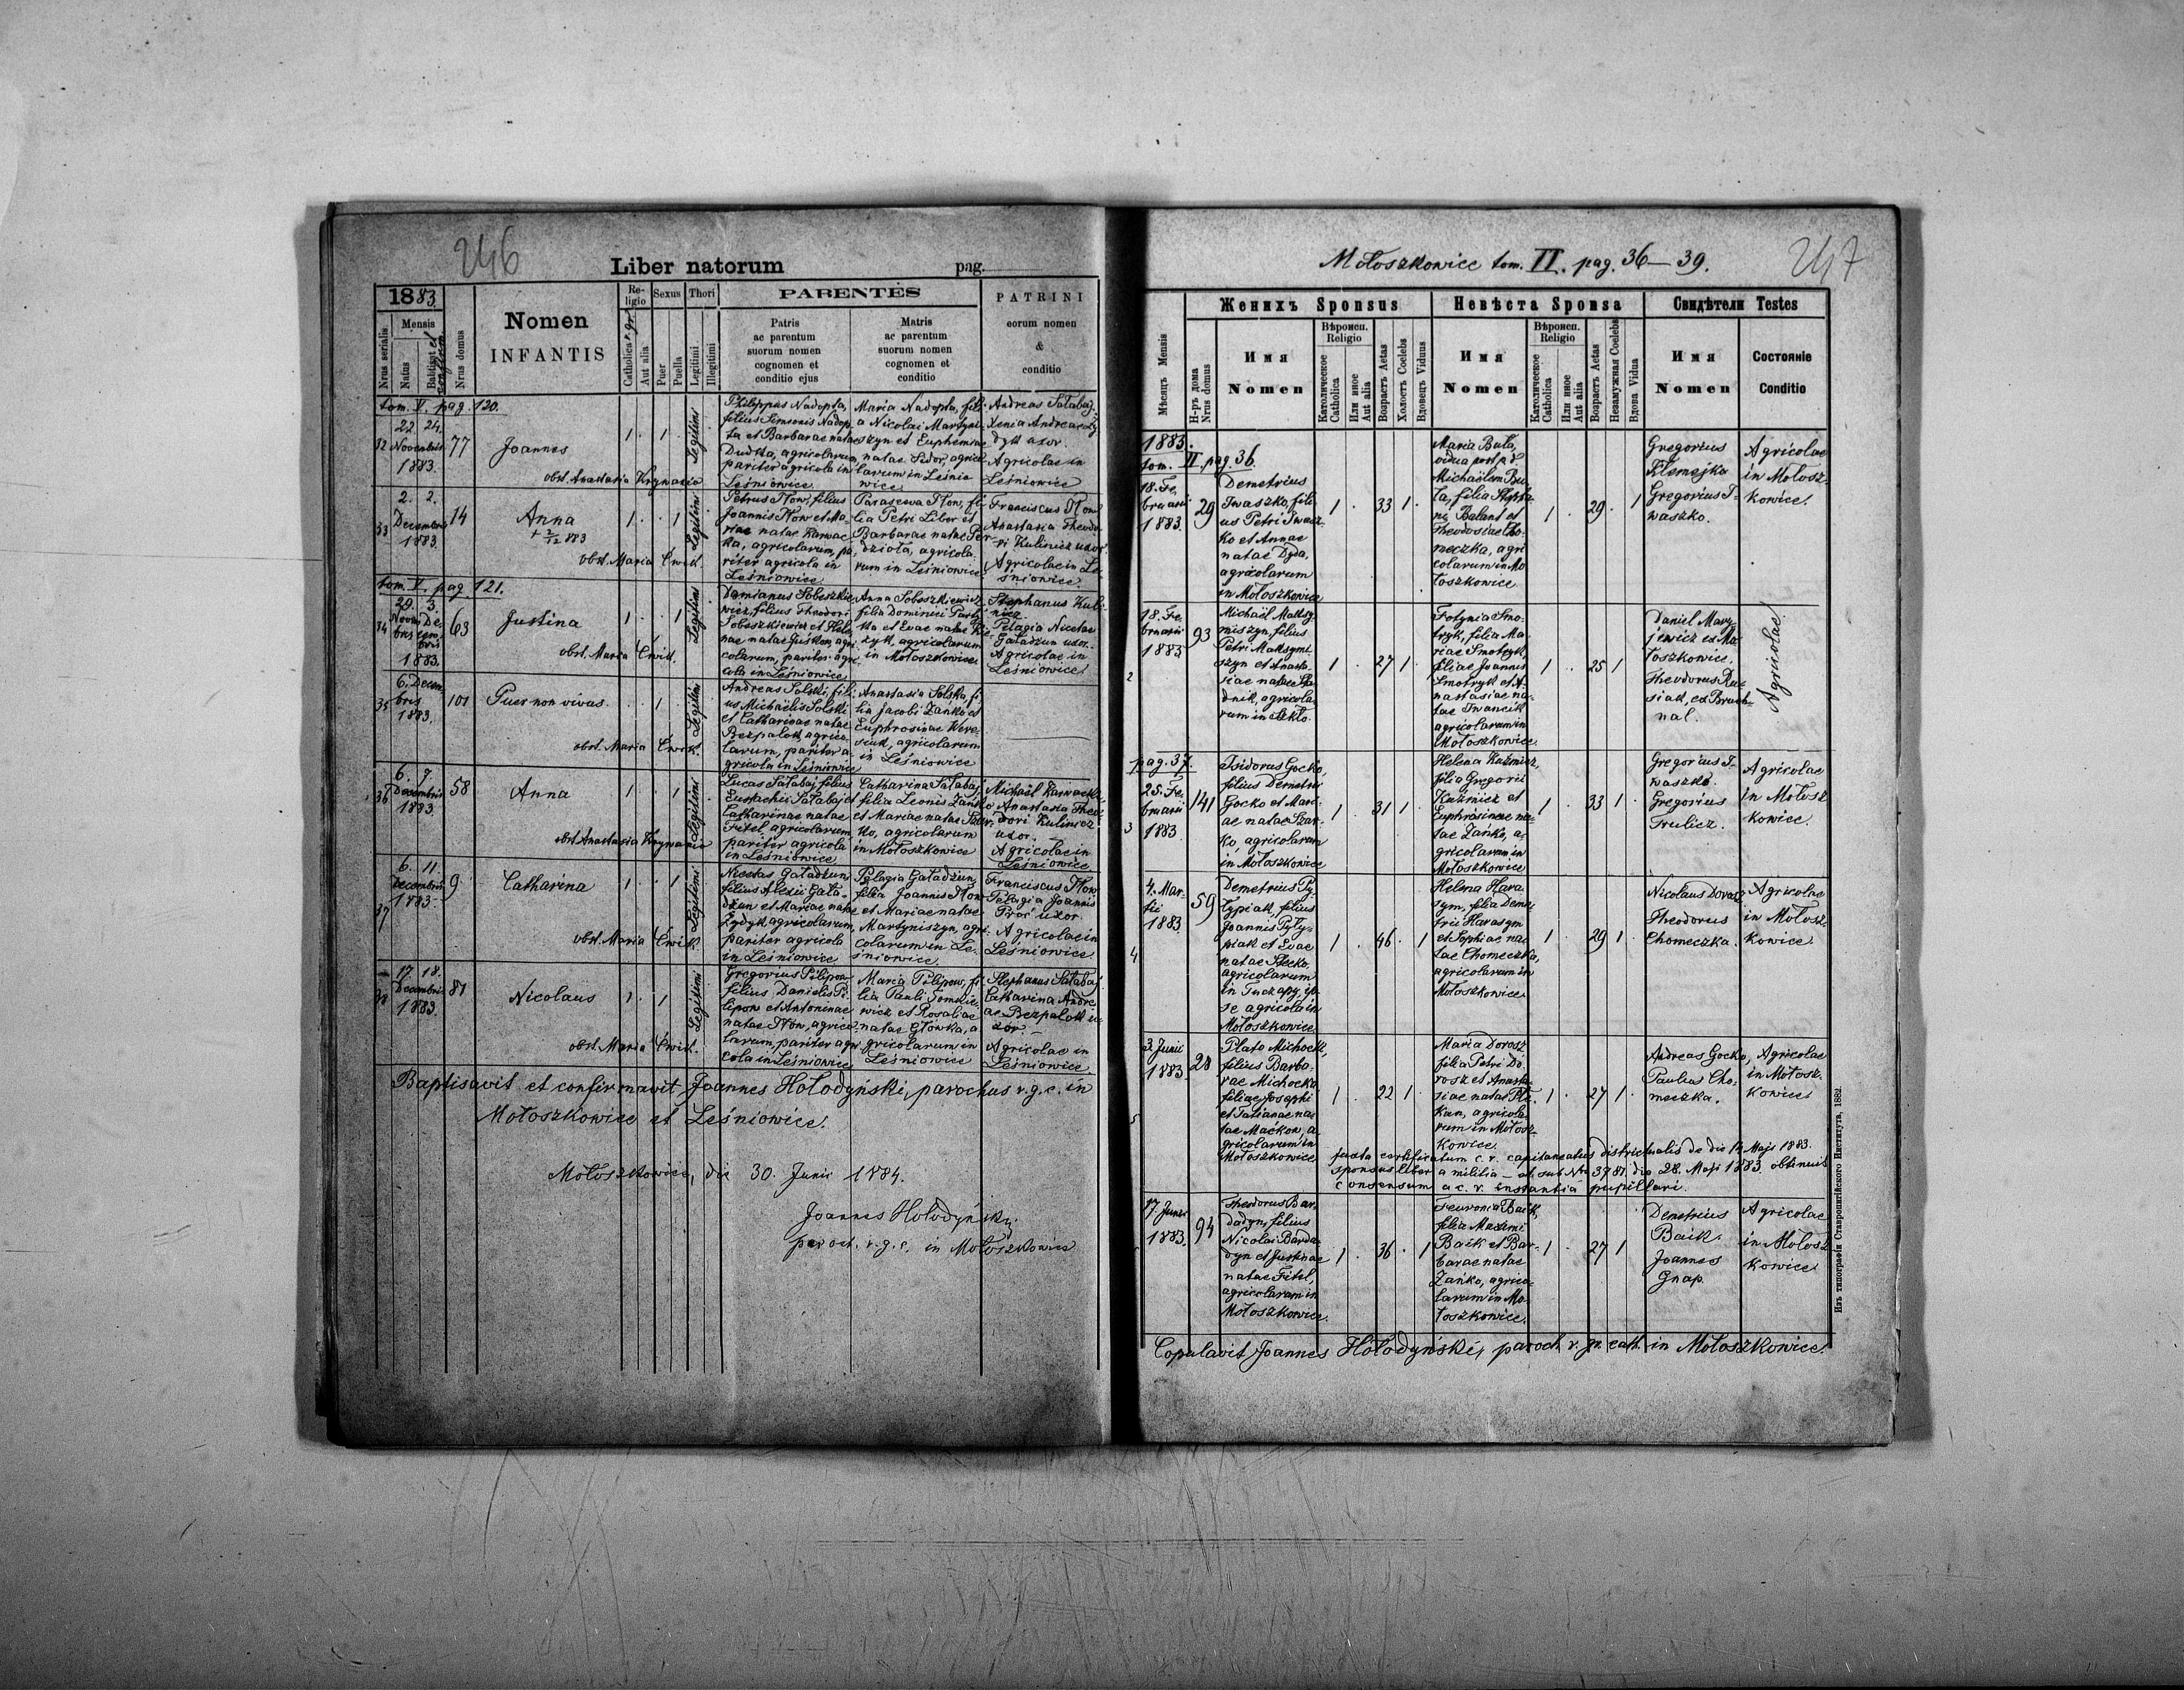 246
Liber natorum pag.
1883.
Nrus serialis
Mensis
Natus
Babtisat et confirm
Nrus domus
Nomen
INFANTIS
Religio
Catholica r. gr.
Aut alia
Sexus
Puer
Puella
Thori
Legitimi
Illegitimi
PARENTES
Patris
ac parentum
suorum nomen
cognomen et
conditio ejus
Matris
ac parentum
suorum nomen
cognomen et
conditio
PATRINI
eorum nomen
&
conditio
tom. V. pag. 120.
32
22. 24.
Novembris
1883.
77
Joannes
1 . 1 .
Legitimi
obst. Anastasia Krywania
Philippus Nadopta,
filius Simeonis Nadop-
ta et Barbarae natae
Dudka, agricolarum,
pariter agricola in
Leśniowice
Maria Nadopta, fili-
a Nicolai Martyni-
szyn et Euphemiae
natae Sidor, agrico-
larum in Leśnio
wice
Andreas Sałabaj.
Xenia Andreae Zy
dyk uxor.
Agricolae in
Leśniowice
33
2. 2.
Decembris
1883.
14
Anna
+ 2/12 883
1 . . 1
Legitimi
obst. Maria Ćwik.
Petrus Iłow, filius
Joannis Iłow et Ma-
riae natae Karwac
ka, agricolarum, pa-
riter agricola in
Leśniowice
Parascewa Iłow, fi-
lia Petri Liber et
Barbarae natae Per-
dziola, agricola-
rum in Leśniowice
Franciscus Iłow
Anastasia Theodo-
ri Kulinicz uxor
Agricolae in Le-
śniowice.
tom. V. pag. 121.
34
29. 3.
Novem De-
bris cem-
bris
1883.
63
Justina
1 . . 1
Legitimi
obst. Maria Ćwik.
Damianus Soboszkie
wicz, filius Theodori
Soboszkiewicz et Hele-
nae natae Guskow, agri-
colarum, pariter agri-
cola in Leśniowice
Anna Soboszkiewicz,
filia Dominici
ka et Evae natae
zyk, agricolarum
in Mołoszkowice
Stephanus Kuli-
nicz
Pelagia Nicetae
Gaładzun uxor.
Agricolae in
Leśniowice
35
6. Decem
bris
1883.
101
Puer non vivus.
. . 1 .
Legitimi
obst. Maria Ćwik.
Andreas Solski, fili-
us Michaelis Solski
et Catharinae natae
Bezpalok, agrico-
larum, pariter a-
gricola in Leśniowice
Anastasia Solska, fi
lia Jacobi Zańko et
Euphrosinae Were-
siuk, agricolarum
in Leśniowice
36
6. 7.
Decembris
1883.
58
Anna
1 . . 1
Legitimi
obst. Anastasia Krywania
Lucas Sałabaj, filius
Eustachii Sałabaj et
Catharinae natae
Fitel, agricolarum,
pariter agricola
in Leśniowice
Catharina Sałabaj,
filia Leonis Zańko
et Mariae natae
ko, agricolarum
in Mołoszkowice
Michaël Karwacki
Anastasia Theo-
dori Kulinicz
uxor.
Agricolae in
Leśniowice
37
6. 11.
Decembris
1883.
9
Catharina
1 . . 1
Legitimi
obst. Maria Ćwik.
Nicetas Gaładzun,
filius Alexii Gała-
dzun et Mariae natae
Zydyk, agricolarum,
pariter agricola
in Leśniowice
Pelagia Gaładzun,
filia Joannis Iłow
et Mariae natae
Martyniszyn, agri-
colarum in Le-
śniowice.
Franciscus Iłow
Pelagia Joannis
uxor.
Agricolae in
Leśniowice
38
17. 18.
Decembris
1883.
81
Nicolaus
1 . 1 .
Legitimi
obst. Maria Ćwik.
Gregorius Pilipow
filius Danielis Pi-
lipow et Antoninae
natae Iłow, agrico-
larum, pariter agri-
cola in Leśniowice
Maria Pilipow, fi-
lia Pauli Tomkie
wicz et Rosaliae
natae Główka, a
gricolarum in
Leśniowice
Stephanus Sałabaj.
Catharina Andre
ae Bezpalok u-
xor.
Agricolae in
Leśniowice
Baptisavit et confirmavit Joannes Hołodyński, parochus r.g.c. in
Mołoszkowice et Leśniowice.
Mołoszkowice, die 30. Junii 1884.
Joannes Hołodyński
paroch. r.g.c. in Mołoszkowice
Mołoszkowice tom. II. pag. 36–39. 247
Мѣсяцъ Mensis
Женихъ Sponsus
Н-ръ дома
Nrus domus
Имя
Nomen
Вѣроисп.
Religio
Католическое
Catholica
Или иное
Aut alia
Возрастъ Aetas
Холостъ Coelebs
Вдовецъ Viduus
Невѣста Sponsa
Имя
Nomen
Вѣроисп.
Religio
Католическое
Catholica
Или иное
Aut alia
Возрастъ Aetas
Незамужная Coelebs
Вдова Vidua
Свидѣтели Testes
Имя
Nomen
Состояніе
Conditio
1883.
tom. II. pag. 36.
18. Fe-
bruarii
1883.
29
Demetrius
Iwaszko, fili-
us Petri Iwasz-
ko et Annae
natae Dyda,
agricolarum
in Mołoszkowice
1 . 33 1 .
Maria Buła,
vidua post p. d.
Michaëlem Bu-
ła, filia Stepha-
ni Balant et
Theodosiae Cho-
meczka, agri
colarum in Mo
łoszkowice
1 . 29 . 1
Gregorius
Klemejko
Gregorius I-
waszko.
Agricolae
in Mołosz-
kowice.
2
18. Fe-
bruarii
1883
93
Michaël Maksy-
miszyn, filius
Petri Maksymi
szyn et Anasta-
siae natae
dnik, agricola-
rum in
1 . 27 1 .
Fotynia Smo-
tryk, filia Ma-
riae Smotryk,
filiae Joannis
Smotryk et A-
nastasiae na-
tae Iwancik
agricolarum in
Mołoszkowice.
1 . 25 1
Daniel Mary-
jewicz ex Mo-
łoszkowice.
Theodorus Ru-
siak, ex Bruch-
nal.
Agricolae
pag. 37.
3
25. Fe-
bruarii
1883
141
Isidorus Gocko,
filius Demetrii
Gocko et Mari-
ae natae Szar-
ko, agricolarum
in Mołoszkowice
1 . 31 1 .
Helena Kuźmicz,
filia Gregorii
Kuźmicz et
Euphrosinae na-
tae Zańko, a-
gricolarum in
Mołoszkowice
1 . 33 1 .
Gregorius I-
waszko.
Gregorius
Trulicz.
Agricolae
in Mołosz
kowice.
4
4. Mar-
tii
1883.
59
Demetrius Py
łypiak, filius
Joannis Pyły-
piak et Evae
natae Stecko
agricolarum
in Tuczapy, ip-
se agricola in
Mołoszkowice
1 . 46 . 1
Helena Hara
sym, filia Deme-
trii Harasym
et Sophiae na-
tae Chomeczka,
agricolarum in
Mołoszkowice
1 . 29 1 .
Nicolaus Dorosz
Theodorus
Chomeczka.
Agricolae
in Mołosz-
kowice.
5
3. Junii
1883.
28
Plato Michocki,
filius Barba-
rae Michocka
filiae Josephi
et Tatianae na-
tae Maćkow, a-
gricolarum in
Mołoszkowice
1 . 22 1 .
Maria Dorosz
filia Petri Do-
rosz et Anasta-
siae natae
kan, agricola-
rum in Mołosz-
kowice.
1 . 27 1 .
Andreas Gocko,
Paulus Cho-
meczka.
Agricolae
in Mołosz-
kowice
juxta certificatum c. r. capitaneatus districtualis de die 14 Maji 1883.
sponsus liber a militia – et sub Nro 3781 die 28. Maji 1883 obtinuit
consensum a c. r. instantia pupillari.
17. Junii
1883.
94
Theodorus Bar-
dadyn, filius
Nicolai Barda-
dyn et Justinae
natae Fitel,
agricolarum in
Mołoszkowice.
1 . 36 . 1
Fevronia Baik,
filia Maximi
Baik et Bar-
barae natae
Zańko, agrico-
larum in Mo-
łoszkowice.
1 . 27 1
Demetrius
Baik.
Joannes
Gnap.
Agricolae
in Mołosz
kowice
Copulavit Joannes Hołodyński, paroch r. gr. cath. in Mołoszkowice.
Изъ типографіи Ставропигійского Института, 1882.